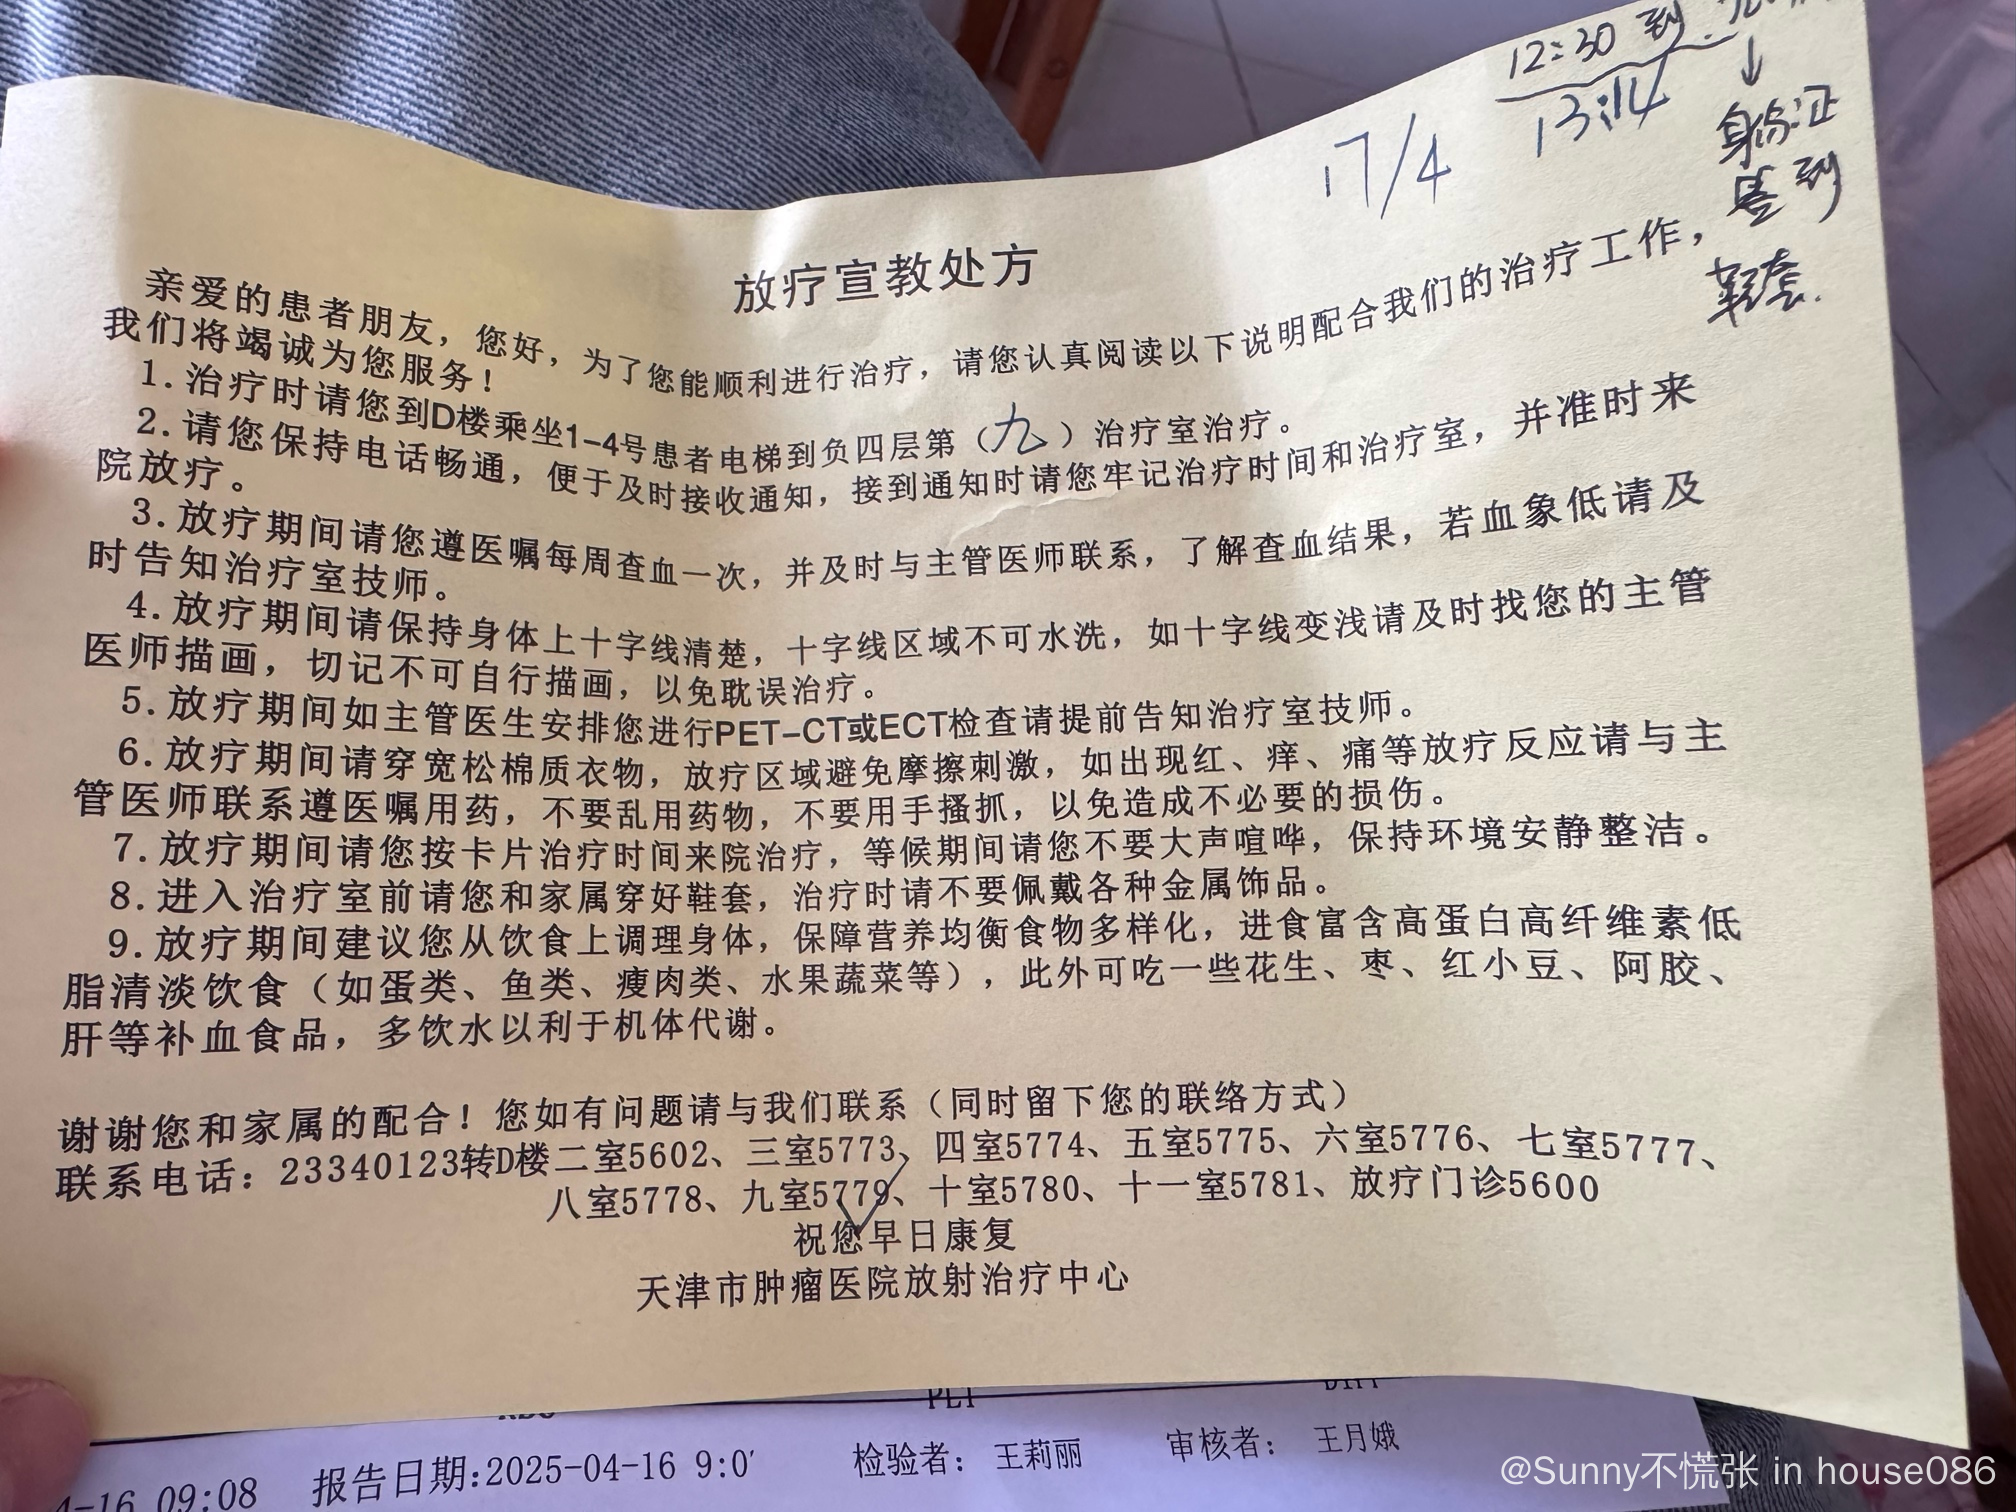 12:30 到
13:14
17/4
身份证
签到
鞋套.
放疗宣教处方
亲爱的患者朋友，您好，为了您能顺利进行治疗，请您认真阅读以下说明配合我们的治疗工作，
我们将竭诚为您服务！
1.治疗时请您到D楼乘坐1-4号患者电梯到负四层第（九）治疗室治疗。
2.请您保持电话畅通，便于及时接收通知，接到通知时请您牢记治疗时间和治疗室，并准时来
院放疗。
3.放疗期间请您遵医嘱每周查血一次，并及时与主管医师联系，了解查血结果，若血象低请及
时告知治疗室技师。
4.放疗期间请保持身体上十字线清楚，十字线区域不可水洗，如十字线变浅请及时找您的主管
医师描画，切记不可自行描画，以免耽误治疗。
5.放疗期间如主管医生安排您进行PET-CT或ECT检查请提前告知治疗室技师。
6.放疗期间请穿宽松棉质衣物，放疗区域避免摩擦刺激，如出现红、痒、痛等放疗反应请与主
管医师联系遵医嘱用药，不要乱用药物，不要用手搔抓，以免造成不必要的损伤。
7.放疗期间请您按卡片治疗时间来院治疗，等候期间请您不要大声喧哗，保持环境安静整洁。
8.进入治疗室前请您和家属穿好鞋套，治疗时请不要佩戴各种金属饰品。
9.放疗期间建议您从饮食上调理身体，保障营养均衡食物多样化，进食富含高蛋白高纤维素低
脂清淡饮食（如蛋类、鱼类、瘦肉类、水果蔬菜等），此外可吃一些花生、枣、红小豆、阿胶、
肝等补血食品，多饮水以利于机体代谢。
谢谢您和家属的配合！您如有问题请与我们联系（同时留下您的联络方式）
联系电话：23340123转D楼二室5602、三室5773、四室5774、五室5775、六室5776、七室5777、
八室5778、九室5779、十室5780、十一室5781、放疗门诊5600
祝您早日康复
天津市肿瘤医院放射治疗中心
PLT
4-16 09:08 报告日期:2025-04-16 9:0 检验者： 王莉丽 审核者： 王月娥
@Sunny不慌张 in house086